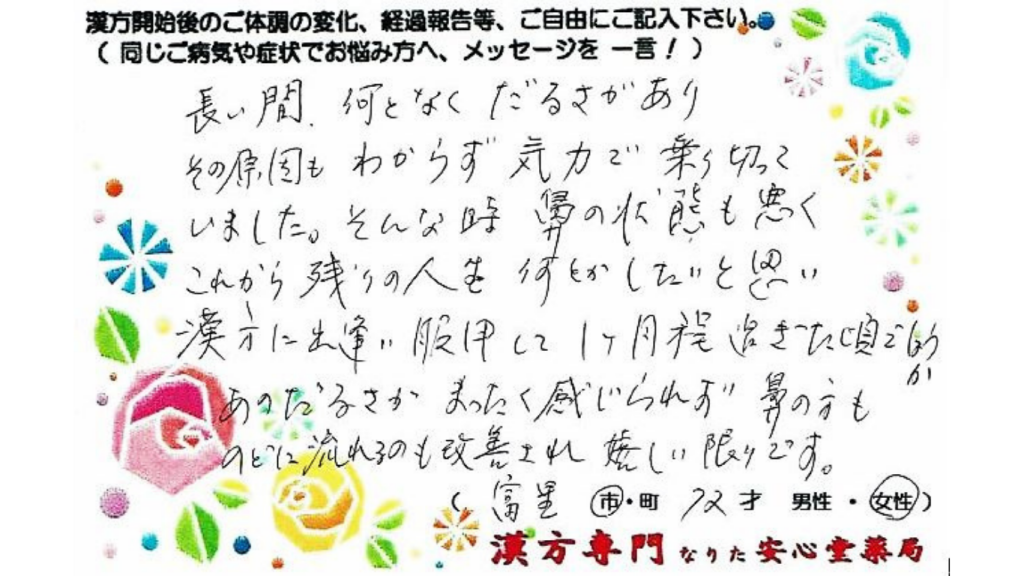 漢方開始後のご体調の変化、経過報告等、ご自由にご記入下さい。
（ 同じご病気や症状でお悩み方へ、メッセージを 一言！）
長い間、何となく だるさがあり
その原因も わからず 気力で 乗り切って
いました。そんな時 鼻の状態も悪く
これから 残りの人生 何とかしたいと思い
漢方に出逢い 服用して 1ヶ月程 過ぎた頃で
あのだるさが まったく感じられず 鼻の方も
のどに流れるのも改善され 嬉しい限りです。
（ 富里 市・町 72 才 男性 ・ 女性 ）
漢方専門 なりた 安心堂薬局